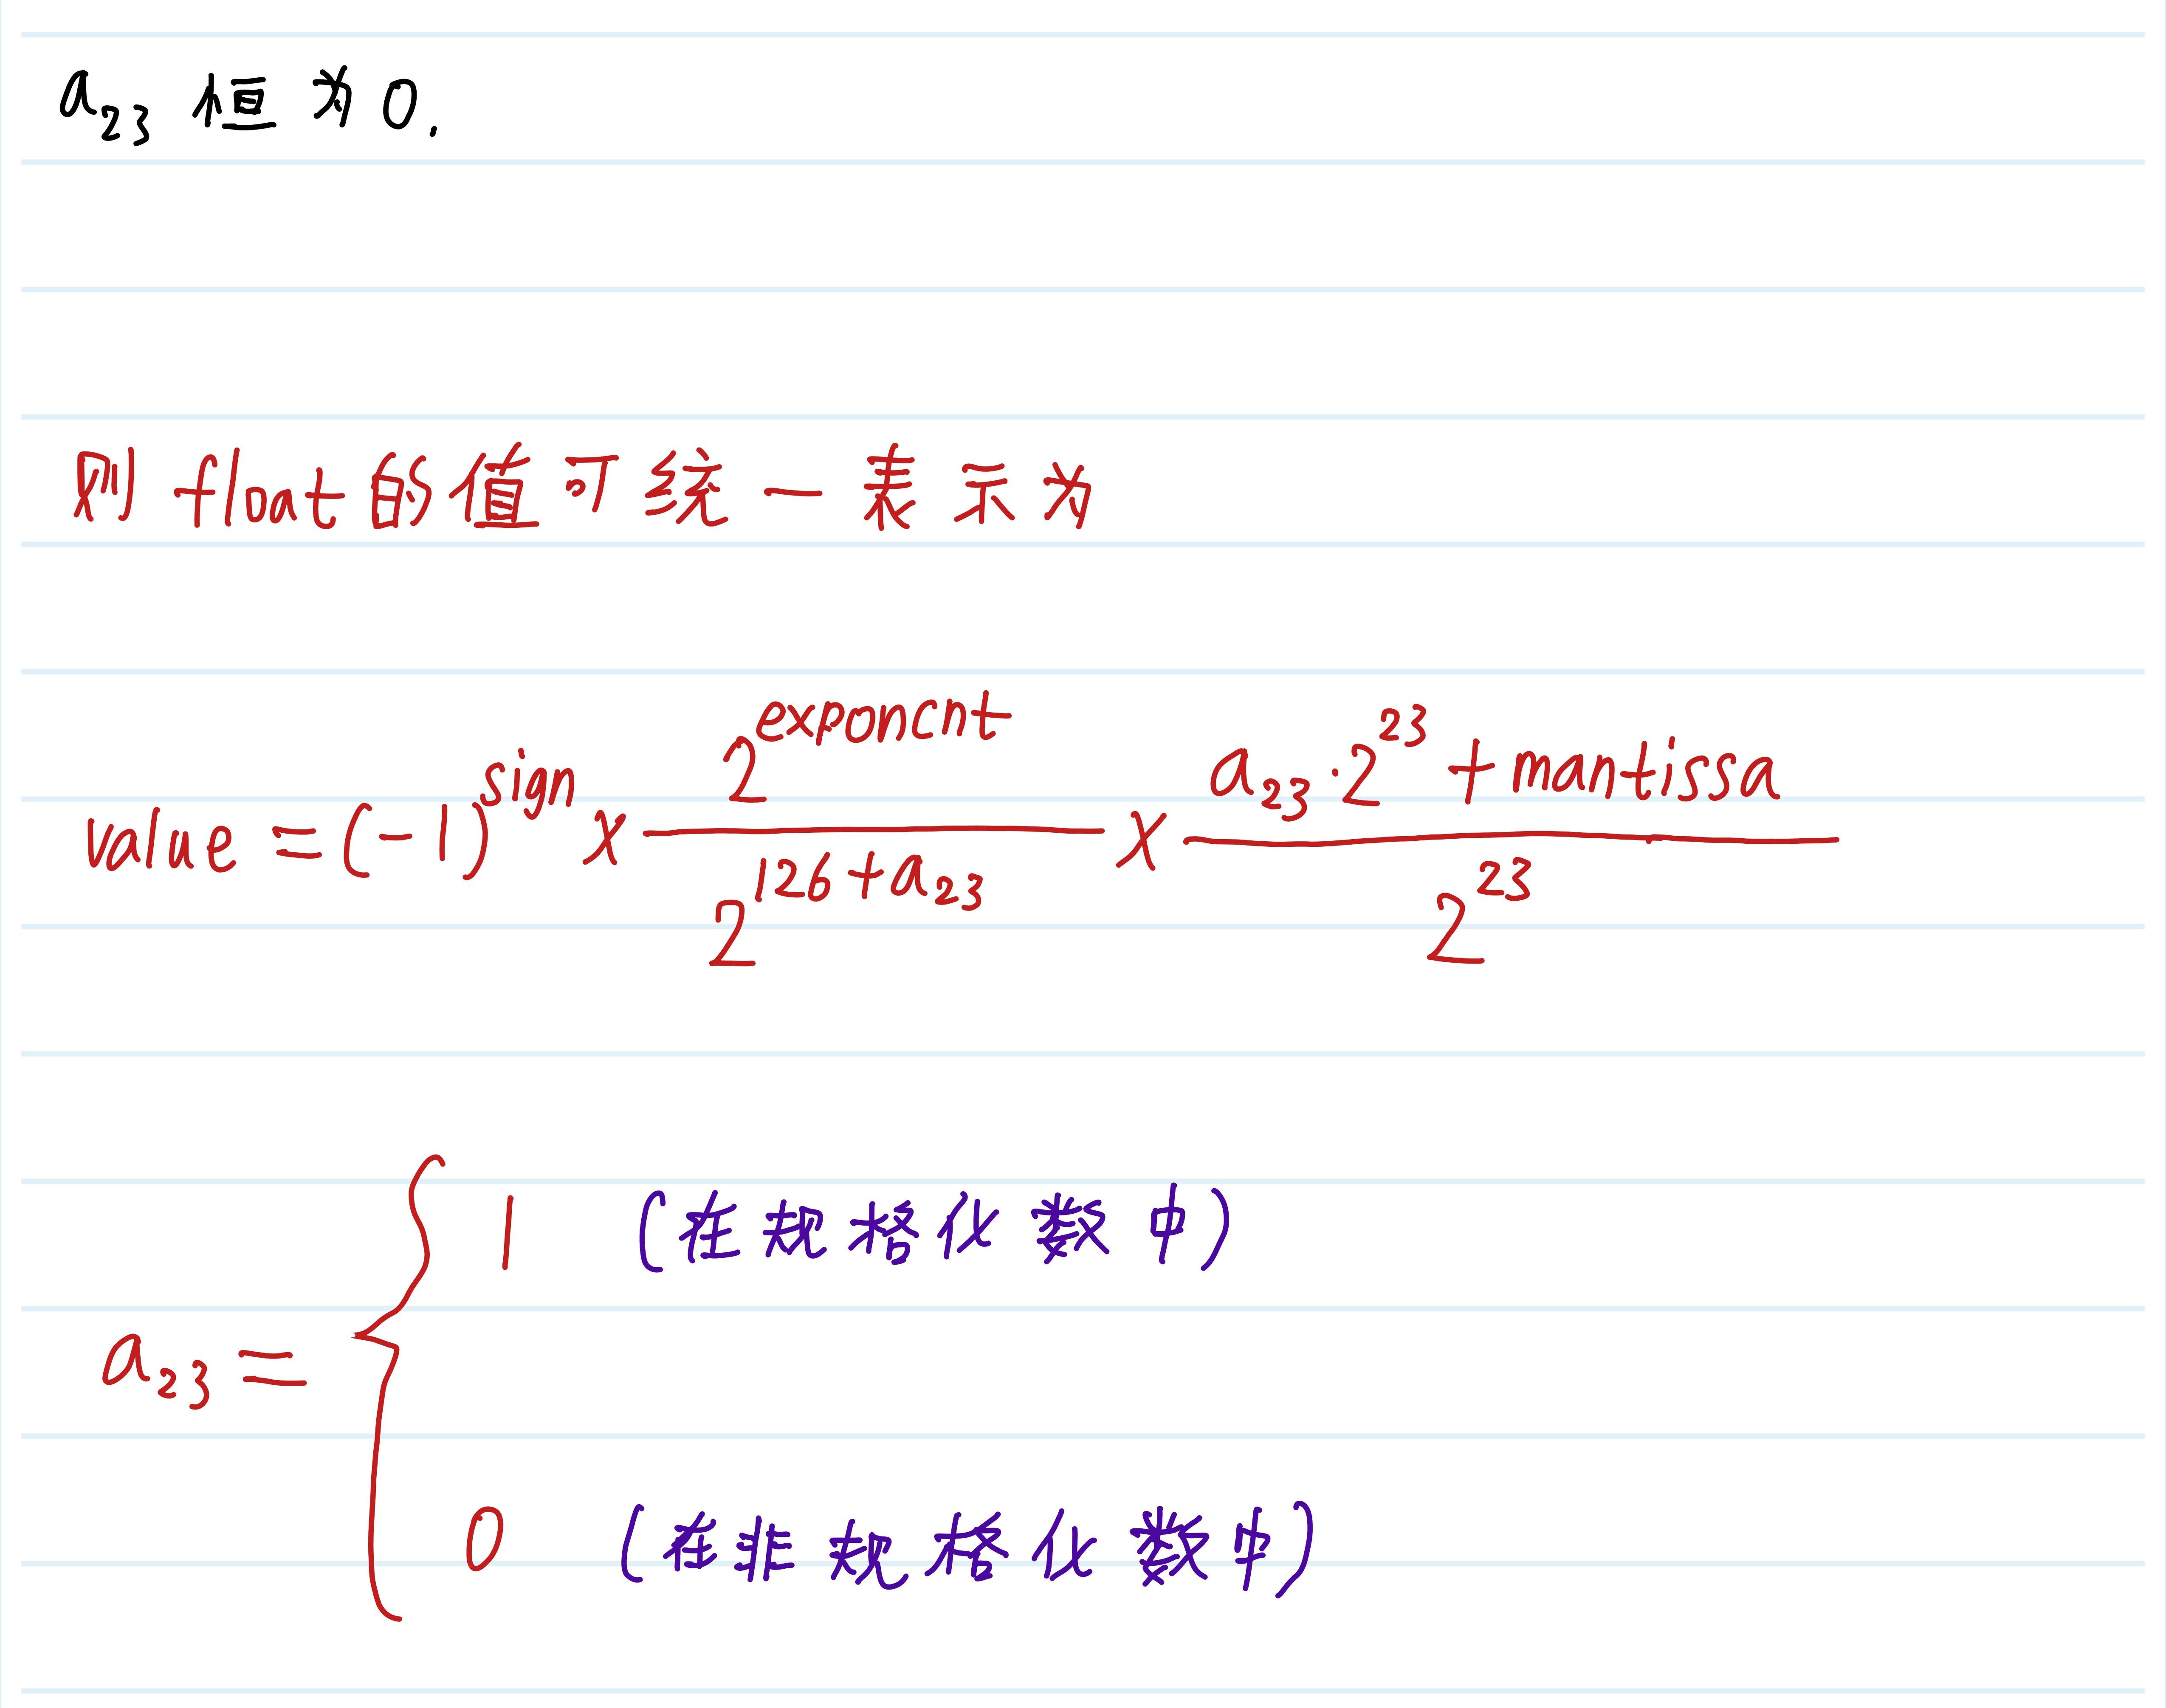 a₂₃ 恒为0.
则 float的值可统一 表示为
value = (-1)^sign × 2^exponent / 2^(126+a₂₃) × (a₂₃·2^23 + mantissa) / 2^23
a₂₃ = { 1 (在规格化数中)
0 (在非规格化数中)